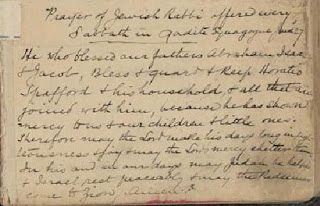 Prayer of Jewish Rabbi offered every
Sabbath in Gadite Synagogue
He who blessed our fathers Abraham Isaac
& Jacob, Bless & Guard & Keep Horatio
Spafford & his household & all that are
joined with him, because he has shown
mercy to us & our children & little ones.
Therefore may the Lord make his days long
& may the Lord's mercy shelter them.
In his and in our days may Judah be helped
& Israel rest peaceably & may the Redeemer
come to Zion, Amen.